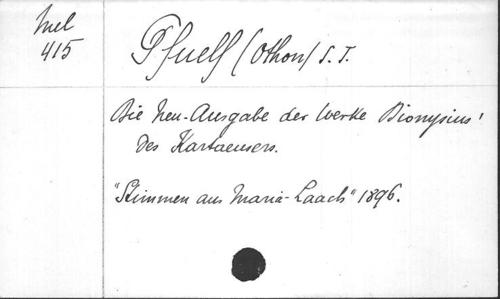 Mel
415
Pfuelf (Othon) S. J.
Die Neu-Ausgabe der Werke Dionysius'
des Kartaeusers.
"Stimmen aus Maria-Laach" 1896.